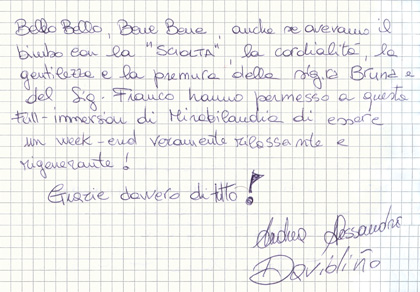 Bello Bello, Bene Bene, anche se avevamo il
bimbo con la "SCIOLTA", la cordialità, la
gentilezza e la premura della sig.ra Bruna e
del Sig. Franco hanno permesso a questa
full-immersion di Mirabilandia di essere
un week-end veramente rilassante e
rigenerante!
Grazie davvero di tutto!
Andrea Alessandra
Davidiño